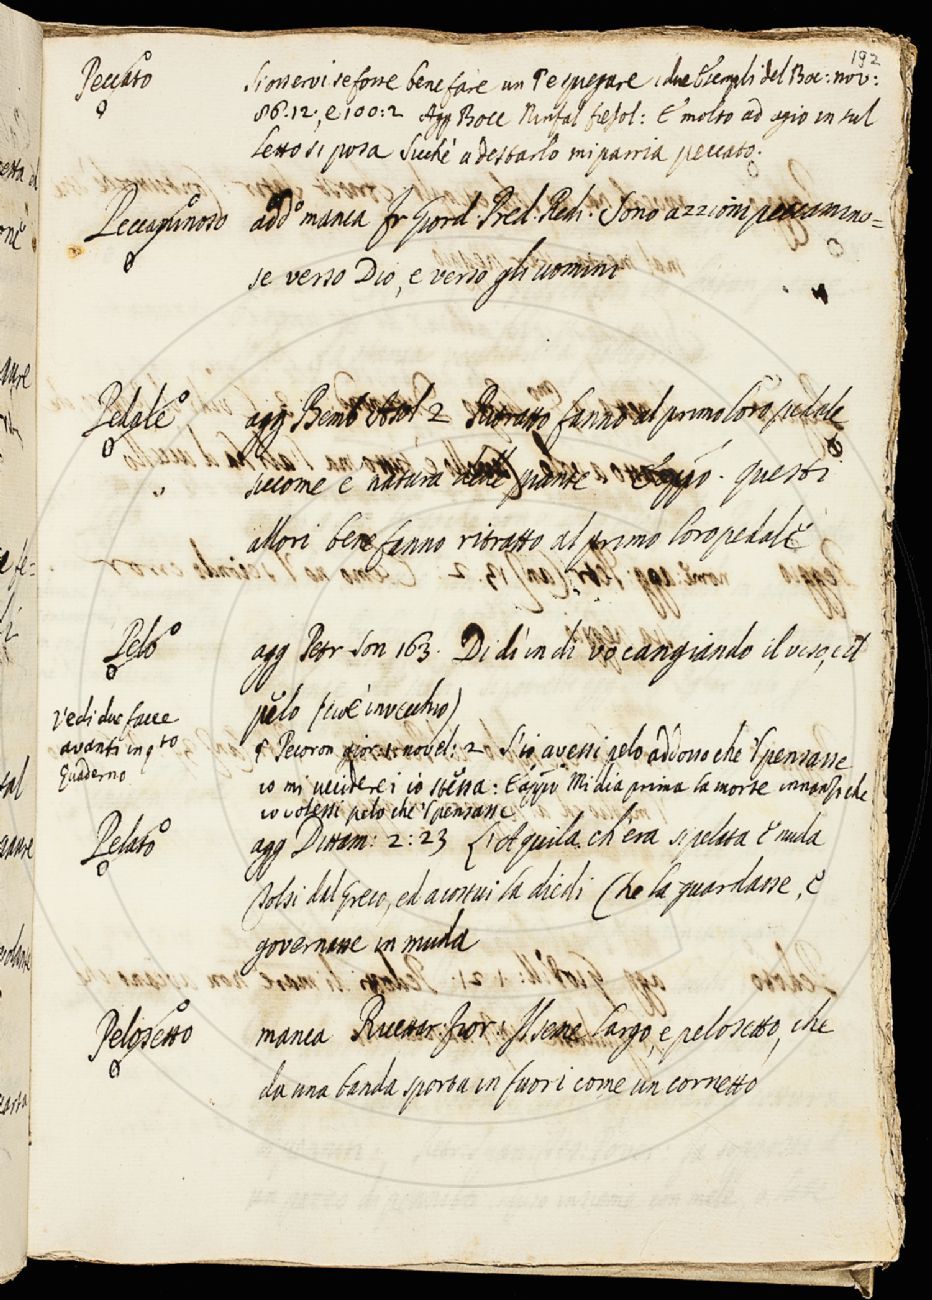 192
Peccato Si osservi se fosse bene fare un § e spiegare i due Esempli del Boc: nov:
86:12, e 100:2 Agg Bocc Ninfal fiesol: E molto ad agio in sul
letto si posa Sicché a destarlo mi parria peccato.
Peccaminoso add.o manca fr Giord. Pred. Redi. Sono azzioni peccamino=
se verso Dio, e verso gli uomini
Pedale agg Bemb Asol 2 Ritratto fanno al primo loro pedale
siccome è natura delle piante questi
allori bene fanno ritratto al primo loro pedale
Pelo agg Petr Son 163. Di dì in dì vo cangiando il viso, e il
pelo (cioè invecchio)
Vedi due facce
avanti in q.to
Quaderno
§ Pecoron gior: novel: 2 S'io avessi pelo addosso che 'l pensasse
io mi ucciderei io stessa: E appo Mi dia prima la morte innanzi che
io volessi pelo che 'l pensasse
Pelato agg Dittam: 2:23 L'Aquila ch'era sì pelata e nuda
Tolsi dal Greco, ed a costui la diedi Che la guardasse, e
governasse in muda
Pelosetto manca Ricettar: fior: Seme largo, e pelosetto, che
da una banda sporta in fuori come un cornetto